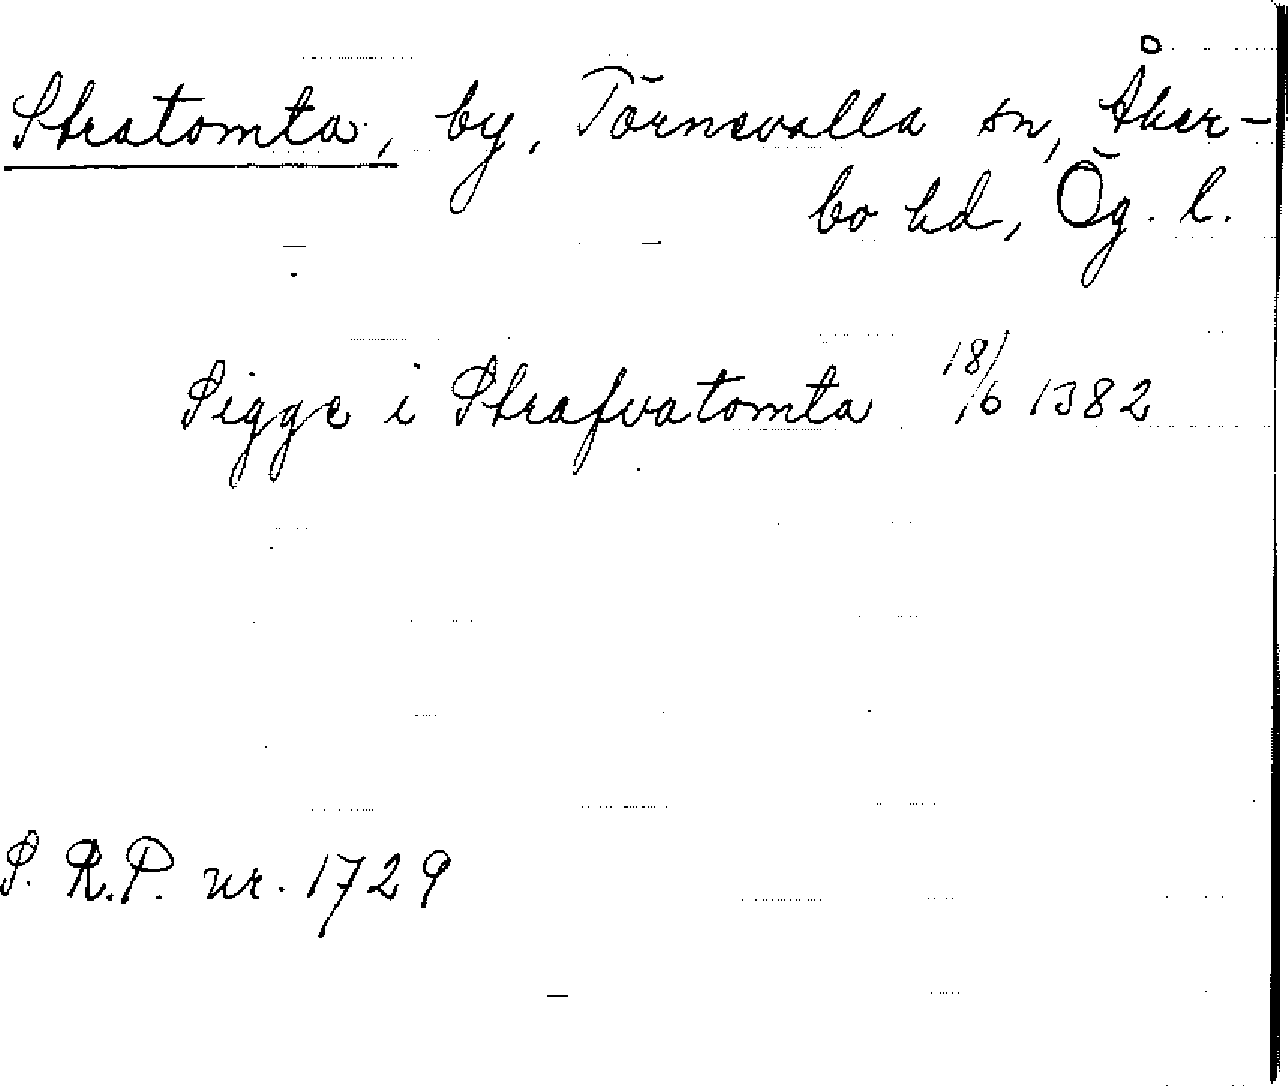 Stratomta, by, Törnevalla sn, Åker-
bo hd, Ög. l.
Sigge i Strafvatomta 18/6 1382
S. R.P. nr. 1729